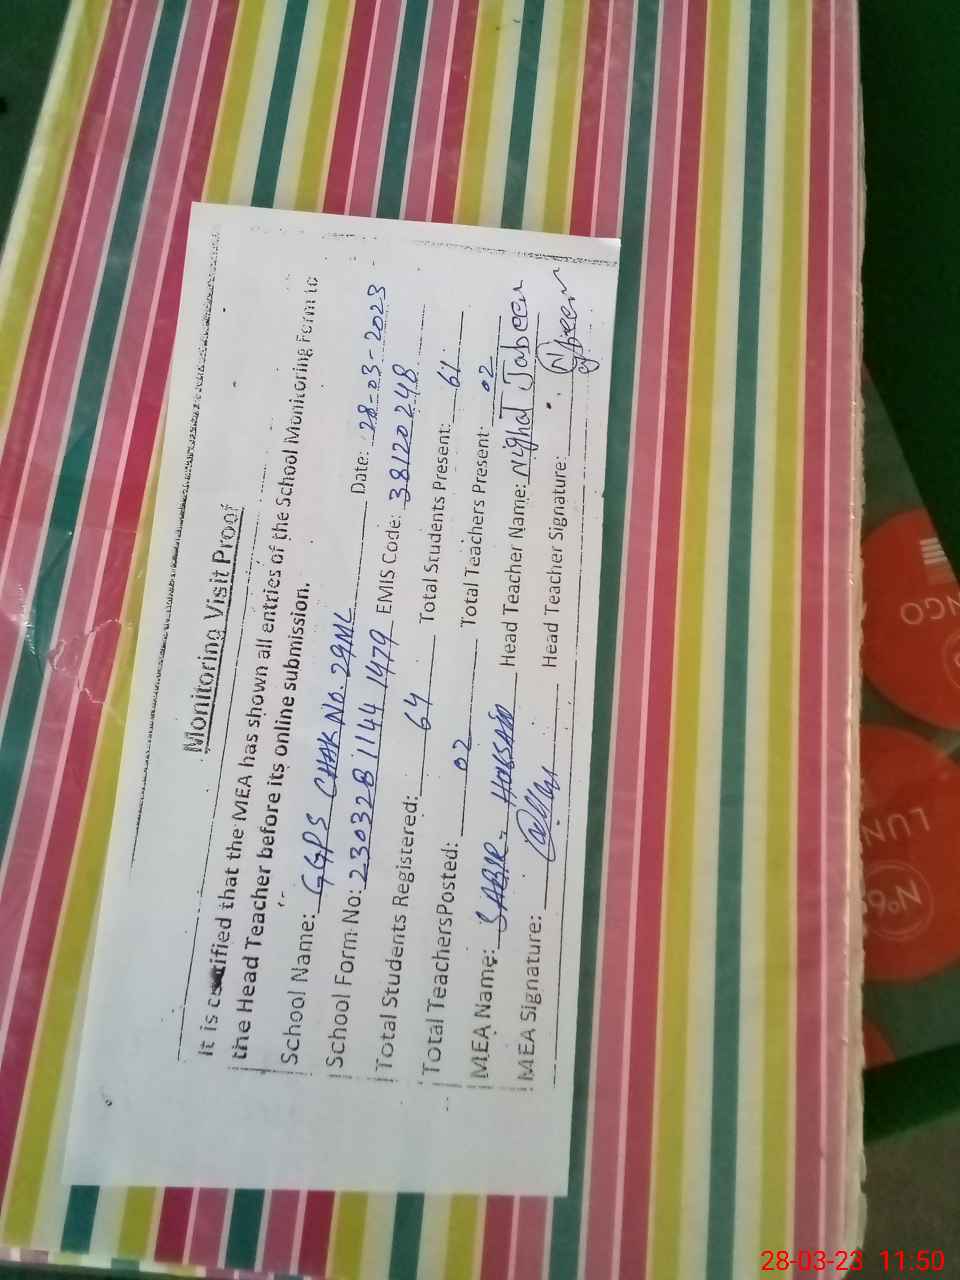 Monitoring Visit Proof
It is certified that the MEA has shown all entries of the School Monitoring Form to
the Head Teacher before its online submission.
School Name: GGPS CHAK NO. 29ML Date: 28-03-2023
School Form No: 230328 1144 1479 EMIS Code: 38120248
Total Students Registered: 64 Total Students Present: 61
Total TeachersPosted: 02 Total Teachers Present: 02
MEA Name: SABIR HUSSAIN Head Teacher Name: Nighat Jabeen
MEA Signature: Head Teacher Signature:
NGO
LUN
Nº6
28-03-23 11:50